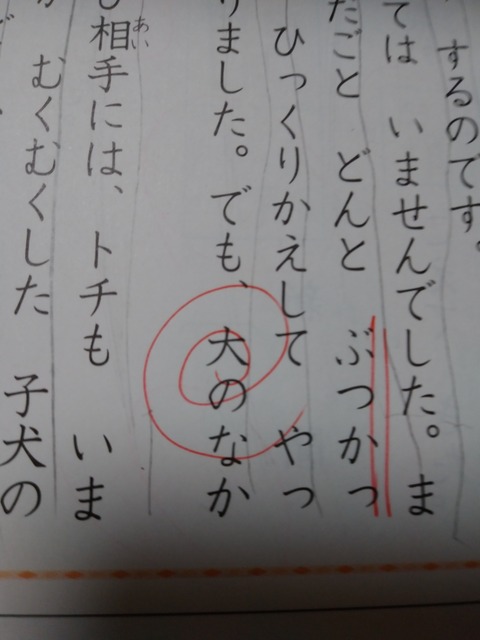 するのです。
ては いませんでした。ま
だごと どんと ぶつかっ
ひっくりかえして やっ
りました。でも、大のなか
相手には、トチも いま
あい
むくむくした 子犬の